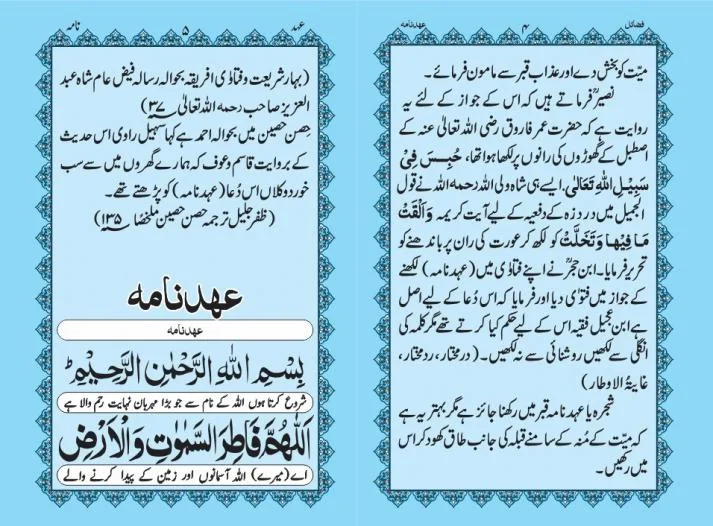 فضائل ۴ عہدنامہ
میّت کو بخش دے اور عذاب قبر سے مامون فرمائے۔
نصیرؒ فرماتے ہیں کہ اس کے جواز کے لئے یہ
روایت ہے کہ حضرت عمر فاروق رضی اللہ تعالیٰ عنہ کے
اصطبل کے گھوڑوں کی رانوں پر لکھا ہوا تھا، حُبِسَ فِیْ
سَبِیْلِ اللّٰہِ تَعَالٰی، ایسے ہی شاہ ولی اللہ رحمہ اللہ نے قول
الجمیل میں دردزہ کے دفعیہ کے لیے آیت کریمہ وَ اَلْقَتْ
مَا فِیْہَا وَ تَخَلَّتْ کو لکھ کر عورت کی ران پر باندھنے کو
تحریر فرمایا۔ ابن حجرؒ نے اپنے فتاوٰی میں (عہدنامہ) لکھنے
کے جواز میں فتوٰی دیا اور فرمایا کہ اس دُعا کے لیے اصل
ہے ابن عجیل فقیہ اس کے لیے حکم کیا کرتے تھے مگر کلمہ کی
انگلی سے لکھیں روشنائی سے نہ لکھیں۔ (درمختار، ردمختار،
غایۃ الاوطار)
شجرہ یا عہدنامہ قبر میں رکھنا جائز ہے مگر بہتر یہ ہے
کہ میّت کے مُنہ کے سامنے قبلہ کی جانب طاق کھود کر اس
میں رکھیں۔
عہد ۵ نامہ
(بہار شریعت و فتاوٰی افریقہ بحوالہ رسالہ فیض عام شاہ عبد
العزیز صاحب رحمہ اللہ تعالیٰ ۳۷)
حِصن حصین میں بحوالہ احمد ہے کہا سہیل راوی اس حدیث
کے بروایت قاسم و عوف کہ ہمارے گھروں میں سے سب
خورد و کلاں اس دُعا (عہدنامہ) کو پڑھتے تھے۔
(ظفر جلیل ترجمہ حصن حصین ملخصًا ۱۳۵)
عہدنامہ
عہدنامہ
بِسْمِ اللّٰہِ الرَّحْمٰنِ الرَّحِیْمِ ؕ
شروع کرتا ہوں اللہ کے نام سے جو بڑا مہربان نہایت رحم والا ہے
اَللّٰھُمَّ فَاطِرَ السَّمٰوٰتِ وَالْاَرْضِ
اے (میرے) اللہ آسمانوں اور زمین کے پیدا کرنے والے